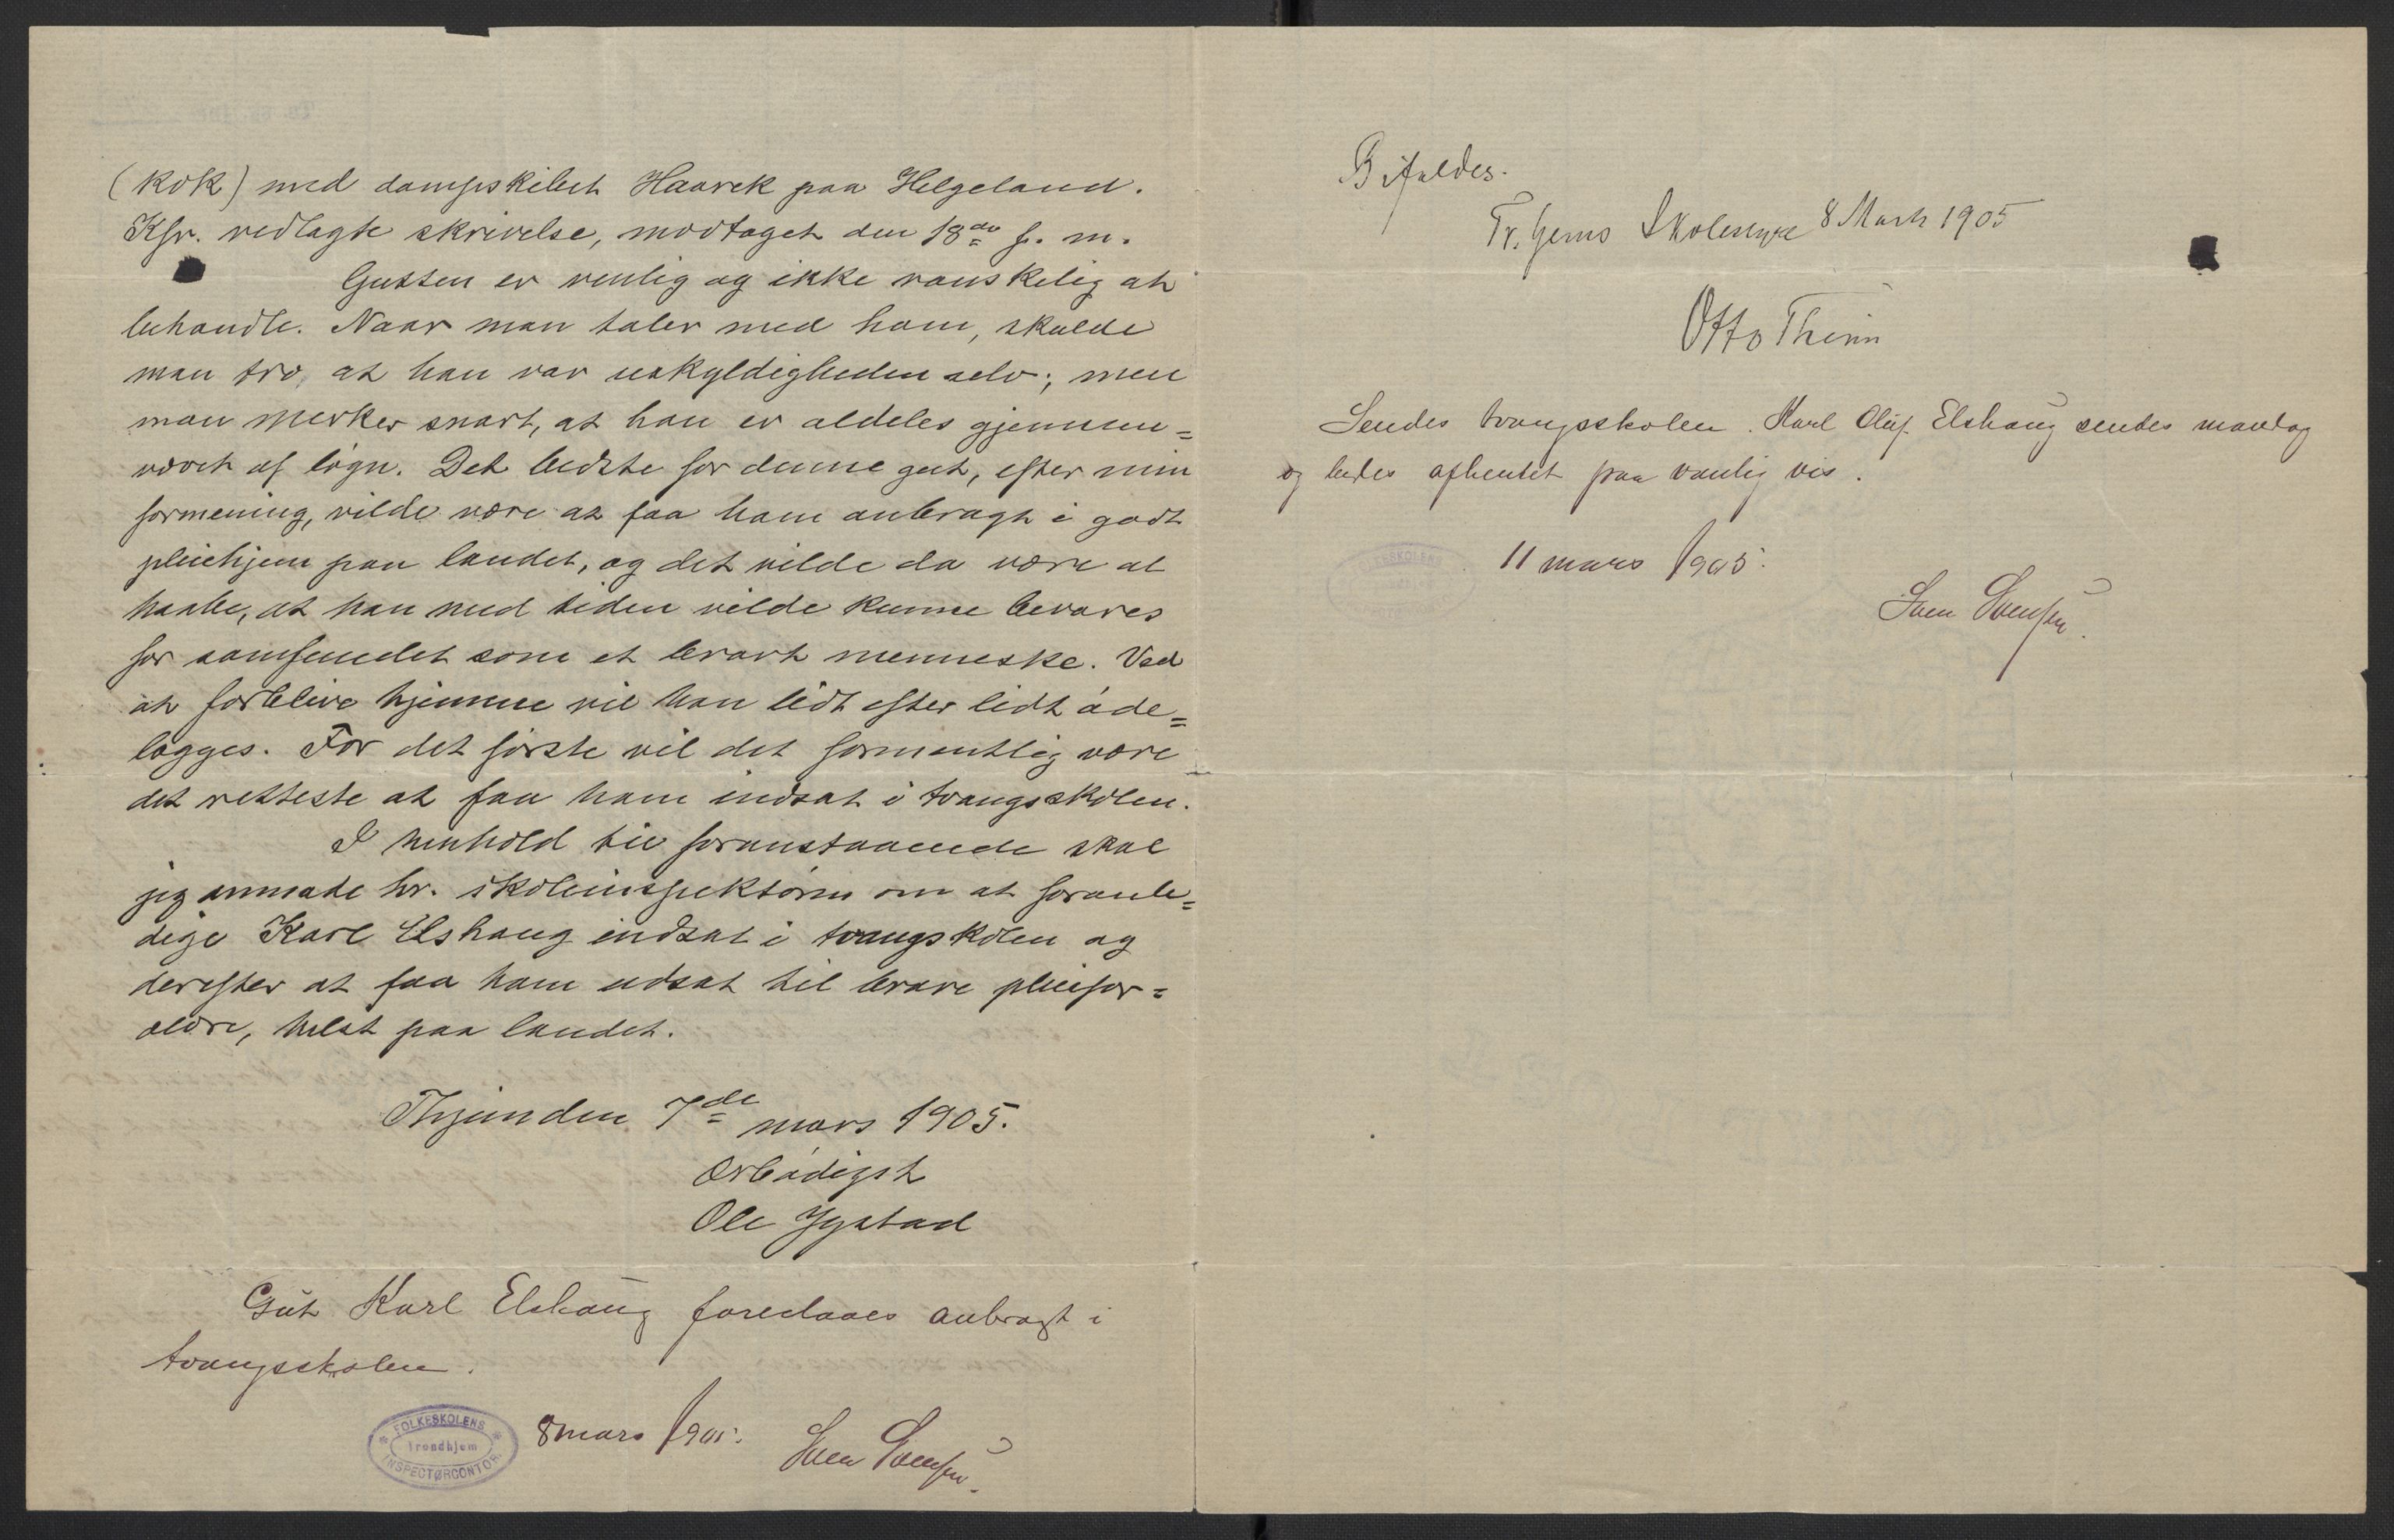 (kok) med dampskibet Haarek paa Helgeland.
Kfr. vedlagte skrivelse, modtaget den 18de f. m.
Gutten er venlig og ikke vanskelig at
behandle. Naar man taler med ham, skulde
man tro, at han var uskyldigheden selv; men
man merker snart, at han er aldeles gjennem=
vævet af løgn. Det bedste for denne gut, efter min
formening, vilde være at faa ham anbragt i godt
pleiehjem paa landet, og det vilde da være at
haabe, at han med tiden vilde kunne bevares
for samfundet som et bravt menneske. Ved
at forblive hjemme vil han lidt efter lidt øde=
lægges. For det første vil det formentlig være
det retteste at faa ham indsat i tvangsskolen.
I henhold til foranstaaende skal
jeg anmode hr. skoleinspektøren om at foranle=
dige Karl Elshaug indsat i tvangskolen og
derefter at faa ham udsat til brave pleiefor=
ældre, helst paa landet.
Thjem den 7de mars 1905.
Ærbødigst
Ole Ystad
Gut Karl Elshaug foreslaaes anbragt i
tvangsskolen.
FOLKESKOLENS
Trondhjem
INSPECTØRCONTOR
8 mars 1905.
Sven Svensen.
Bifaldes.
Tr.hjems Skolestyre 8 Marts 1905
Otto
Sendes tvangsskolen. Karl Oluf Elshaug sendes mandag
og bedes afhentet paa vanlig vis.
11 mars 1905.
Sven Svensen.